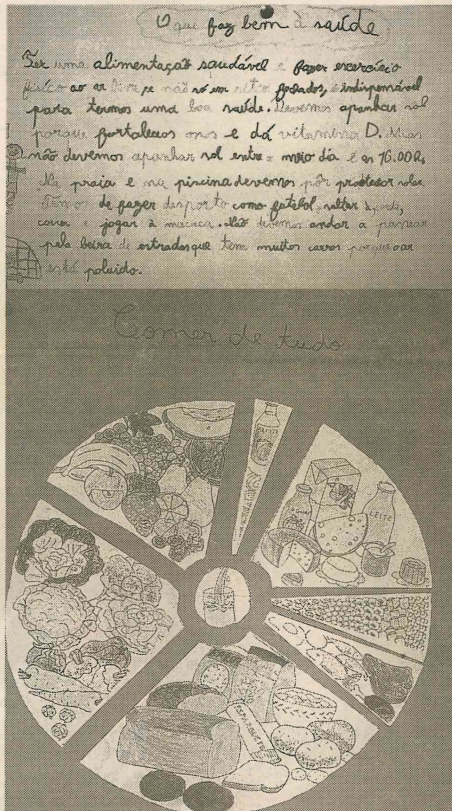 O que faz bem à saúde
Ter uma alimentação saudável e fazer exercício
físico ao ar livre e não só em sítios fechados, é indispensável
para termos uma boa saúde. Devemos apanhar sol
porque fortalece os ossos e dá vitamina D. Mas
não devemos apanhar sol entre o meio dia e as 16.00h.
Na praia e na piscina devemos pôr protector solar.
Temos de fazer desporto como futebol, saltar à corda,
correr e jogar à macaca. Não devemos andar a passear
pela beira de estradas que tem muitos carros porque o ar
está poluído.
Comer de tudo
LEITE